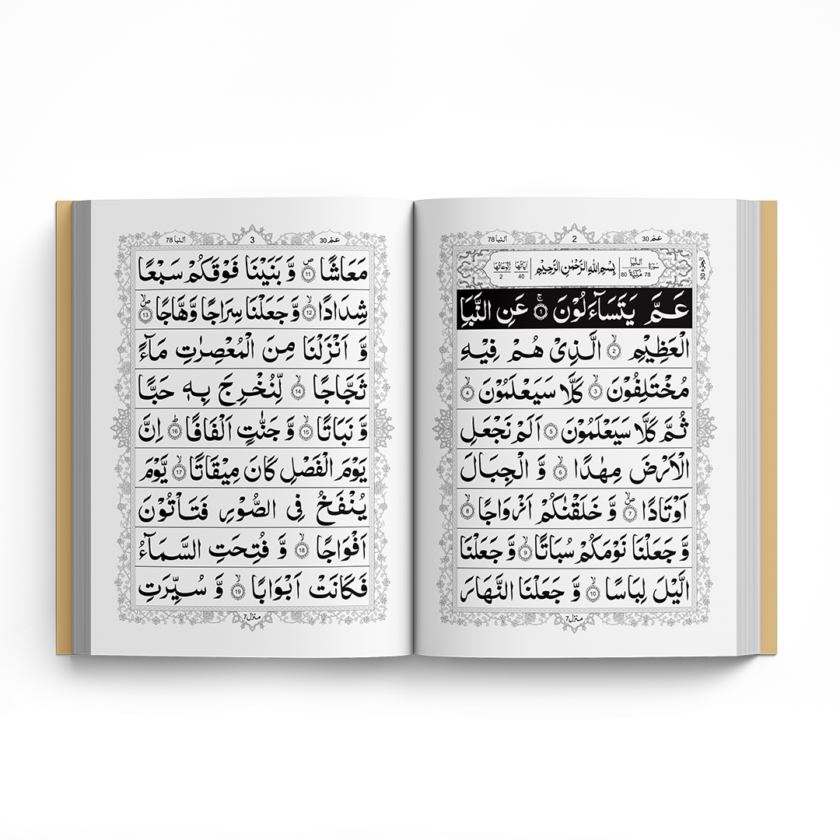 عمّ 30 2 النبا 78
سورة النبا مكية 78 80 بِسْمِ اللهِ الرَّحْمٰنِ الرَّحِيْمِ اياتها 40 ركوعاتها 2
عَمَّ يَتَسَآءَلُوْنَ ۚ 1 عَنِ النَّبَاِ
الْعَظِيْمِ ۙ 2 الَّذِىْ هُمْ فِيْهِ
مُخْتَلِفُوْنَ ؕ 3 كَلَّا سَيَعْلَمُوْنَ ۙ 4
ثُمَّ كَلَّا سَيَعْلَمُوْنَ 5 اَلَمْ نَجْعَلِ
الْاَرْضَ مِهٰدًا ۙ 6 وَّ الْجِبَالَ
اَوْتَادًا ۪ۙ 7 وَّ خَلَقْنٰكُمْ اَزْوَاجًا ۙ 8
وَّ جَعَلْنَا نَوْمَكُمْ سُبَاتًا ۙ 9 وَّ جَعَلْنَا
الَّيْلَ لِبَاسًا ۙ 10 وَّ جَعَلْنَا النَّهَارَ
منزل ٧
عمّ 30 3 النبا 78
مَعَاشًا ۪ 11 وَّ بَنَيْنَا فَوْقَكُمْ سَبْعًا
شِدَادًا ۙ 12 وَّ جَعَلْنَا سِرَاجًا وَّهَّاجًا ۪ۙ 13
وَّ اَنْزَلْنَا مِنَ الْمُعْصِرٰتِ مَآءً
ثَجَّاجًا ۙ 14 لِّنُخْرِجَ بِهٖ حَبًّا
وَّ نَبَاتًا ۙ 15 وَّ جَنّٰتٍ اَلْفَافًا ؕ 16 اِنَّ
يَوْمَ الْفَصْلِ كَانَ مِيْقَاتًا ۙ 17 يَّوْمَ
يُنْفَخُ فِى الصُّوْرِ فَتَاْتُوْنَ
اَفْوَاجًا ۙ 18 وَّ فُتِحَتِ السَّمَآءُ
فَكَانَتْ اَبْوَابًا ۙ 19 وَّ سُيِّرَتِ
منزل ٧